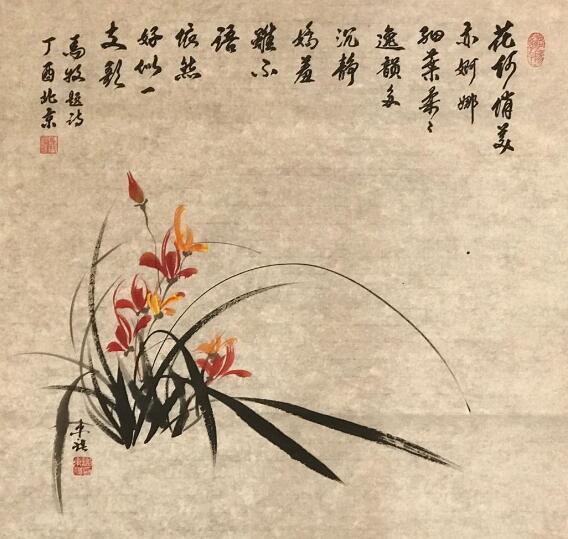 花何俏美
亦婀娜
细叶柔々
逸韻多
沉静
娇羞
虽不
语
依然
好似一
支歌
马牧题诗
丁酉北京